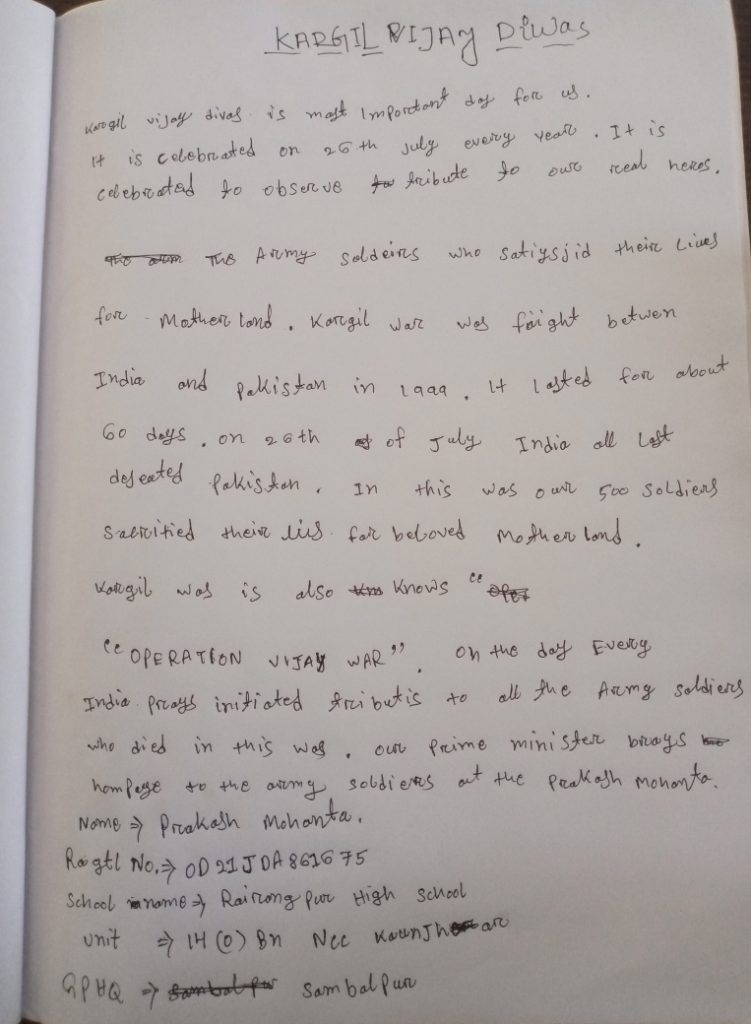 KARGIL VIJAY Diwas
Kargil vijay divas is most Important day for us.
It is celebrated on 26th July every year. It is
celebrated to observe tribute to our real heros.
The Army soldeirs who satiysjid their lives
for Mother land. Kargil war was faight betwen
India and pakistan in 1999. It lasted for about
60 days. on 26th of July India all last
defeated Pakistan. In this was our 500 soldiers
Sacritied their livs for beloved Mother land.
Kargil was is also knows "
"OPERATION VIJAY WAR". On the day Every
India prays initiated tributis to all the Army soldiers
who died in this was. our prime minister brays
hompage to the army soldiers at the Prakash Mohanta.
Name ⇒ Prakash Mohanta.
Ragtl No. ⇒ OD21JDA861675
School name ⇒ Rairangpur High School
Unit ⇒ 1H (O) Bn Ncc Keunjhar
GPHQ ⇒ Sambalpur